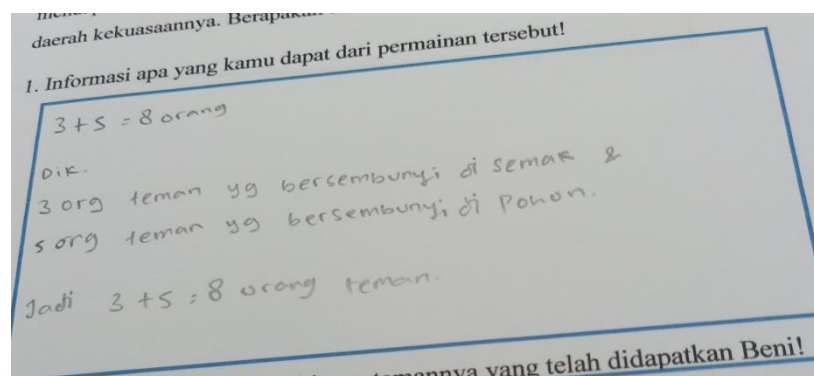 daerah kekuasaannya.
1. Informasi apa yang kamu dapat dari permainan tersebut!
3 + 5 = 8 orang
Dik.
3 org teman yg bersembunyi di semak &
5 org teman yg bersembunyi di Pohon.
Jadi 3 + 5 = 8 orang teman.
yang telah didapatkan Beni!